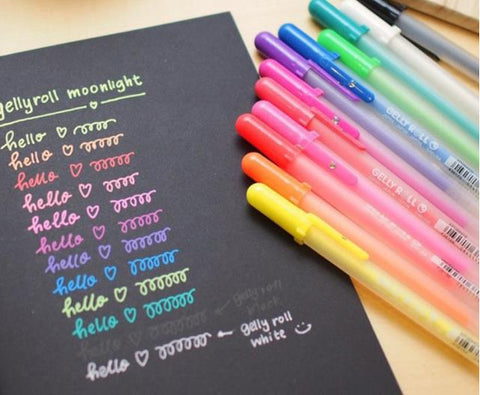 gellyroll moonlight
hello ♡
hello ♡
hello ♡
hello ♡
hello ♡
hello ♡
hello ♡
hello ♡
hello ♡
hello ♡
hello ♡ ← gelly roll
black
hello ♡ ← gelly roll
white
GELLY ROLL
GELLY ROLL